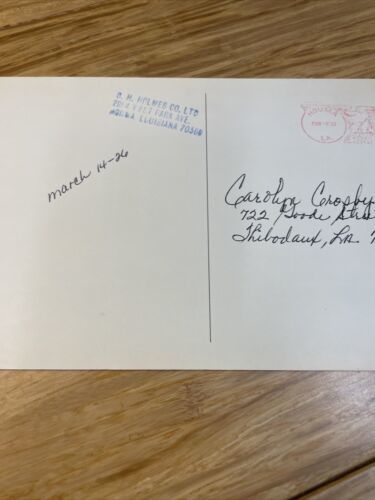 D. H. HOLMES CO., LTD
PARK AVE.
HOUMA, LOUISIANA 70360
HOUMA
LA
march 14-26
Carolyn Crosby
722 Goode Stre
Thibodaux, La 7